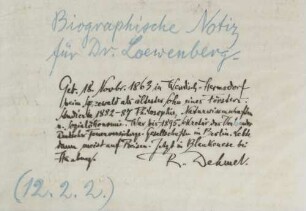 Biographische Notiz
für Dr. Loewenberg.
Geb. 18. Novbr. 1863 in Wendisch-Hermsdorf
als ältester Sohn eines Försters.
Studierte 1882-87 Philosophie, Naturwissenschaften
u. Sozialökonomie. War bis 1895 Sekretär der
in Berlin. Lebte
dann meist auf Reisen. Jetzt in Blankenese bei
Hamburg.
R. Dehmel.
(12. 2. 2.)